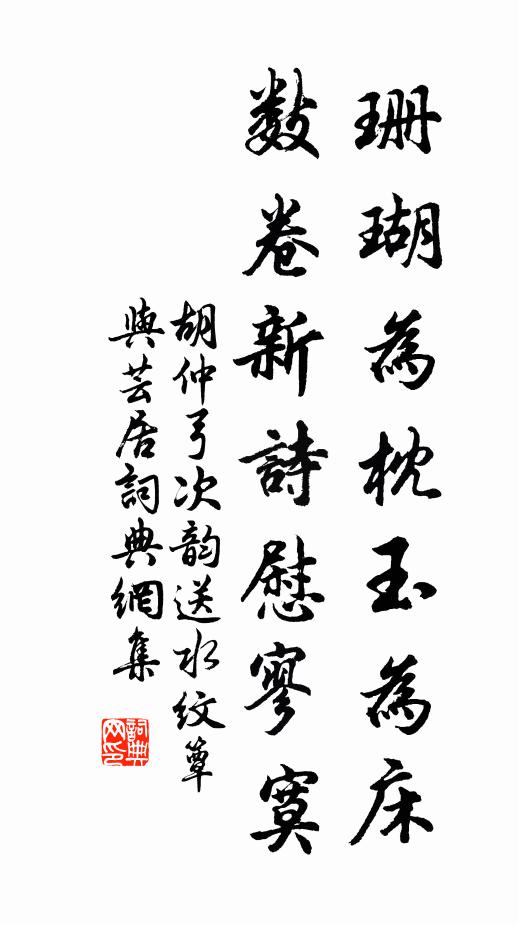 珊瑚為枕玉為床
數卷新詩慰寥寞
胡仲弓次韵送水紋簟
與芸居詞典網集
詞典网印